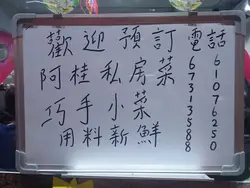 歡迎預訂電話
阿桂私房菜
巧手小菜
用料新鮮
67313588
61076250